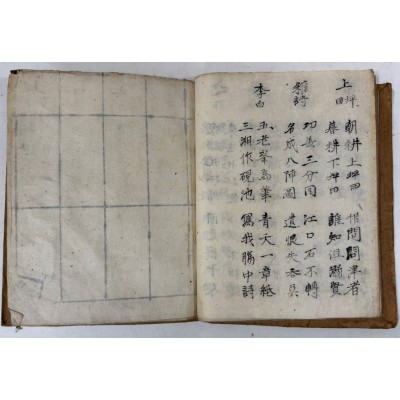 上坪田
朝耕上坪田 借問問津者
暮耕下坪田 誰知沮溺賢
雜詩
功盖三分国 江口石不轉
名成八陣圖 遺恨失吞吳
李白
五老峯爲筆 青天一章紙
三湘作硯池 寫我腸中詩